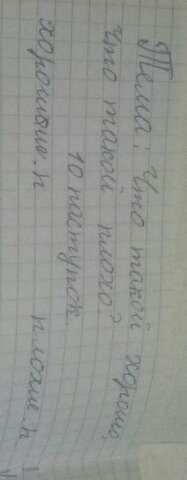 Тема: Что такой хорошо,
что такой плохо?
10 паступок.
хорошые.п плохие.п